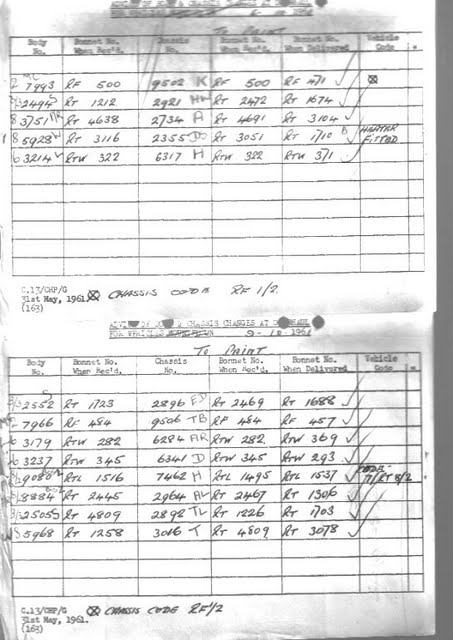 ADVICE OF BODY & CHASSIS CHANGES AT OVERHAUL
FOR VEHICLES 6-10-1961
TO PAINT
Body No. Bonnet No. When Rec'd. Chassis No. Bonnet No. When Rec'd. Bonnet No. When Delivered Vehicle Code
7993 RF 500 9502 K RF 500 RF 471
2494 RT 1212 2921 RT 2472 RT 1674
3751 RT 4638 2734 A RT 4691 RT 3104
5928 RT 3116 2355 DO RT 3051 RT 1710 B HEATER FITTED
3214 RTW 322 6317 H RTW 322 RTW 371
C.13/CHP/G
31st May, 1961. CHASSIS CODE RF 1/2.
(163)
ADVICE OF BODY & CHASSIS CHANGES AT OVERHAUL
FOR VEHICLES 9-10-1961
TO PAINT
Body No. Bonnet No. When Rec'd. Chassis No. Bonnet No. When Rec'd. Bonnet No. When Delivered Vehicle Code
2552 RT 1723 2896 RT 2469 RT 1688
7966 RF 484 9506 TB RF 484 RF 457
3179 RTW 282 6284 AR RTW 282 RTW 369
3237 RTW 345 6341 D RTW 345 RTW 293
9080 RTL 1516 7462 H RTL 1495 RTL 1537 CODE
8884 RT 2445 2964 AL RT 2467 RT 1306
2505 RT 4809 2892 TL RT 1226 RT 1703
5968 RT 1258 3016 T RT 4809 RT 3078
C.13/CHP/G CHASSIS CODE RF1/2
31st May, 1961.
(163)